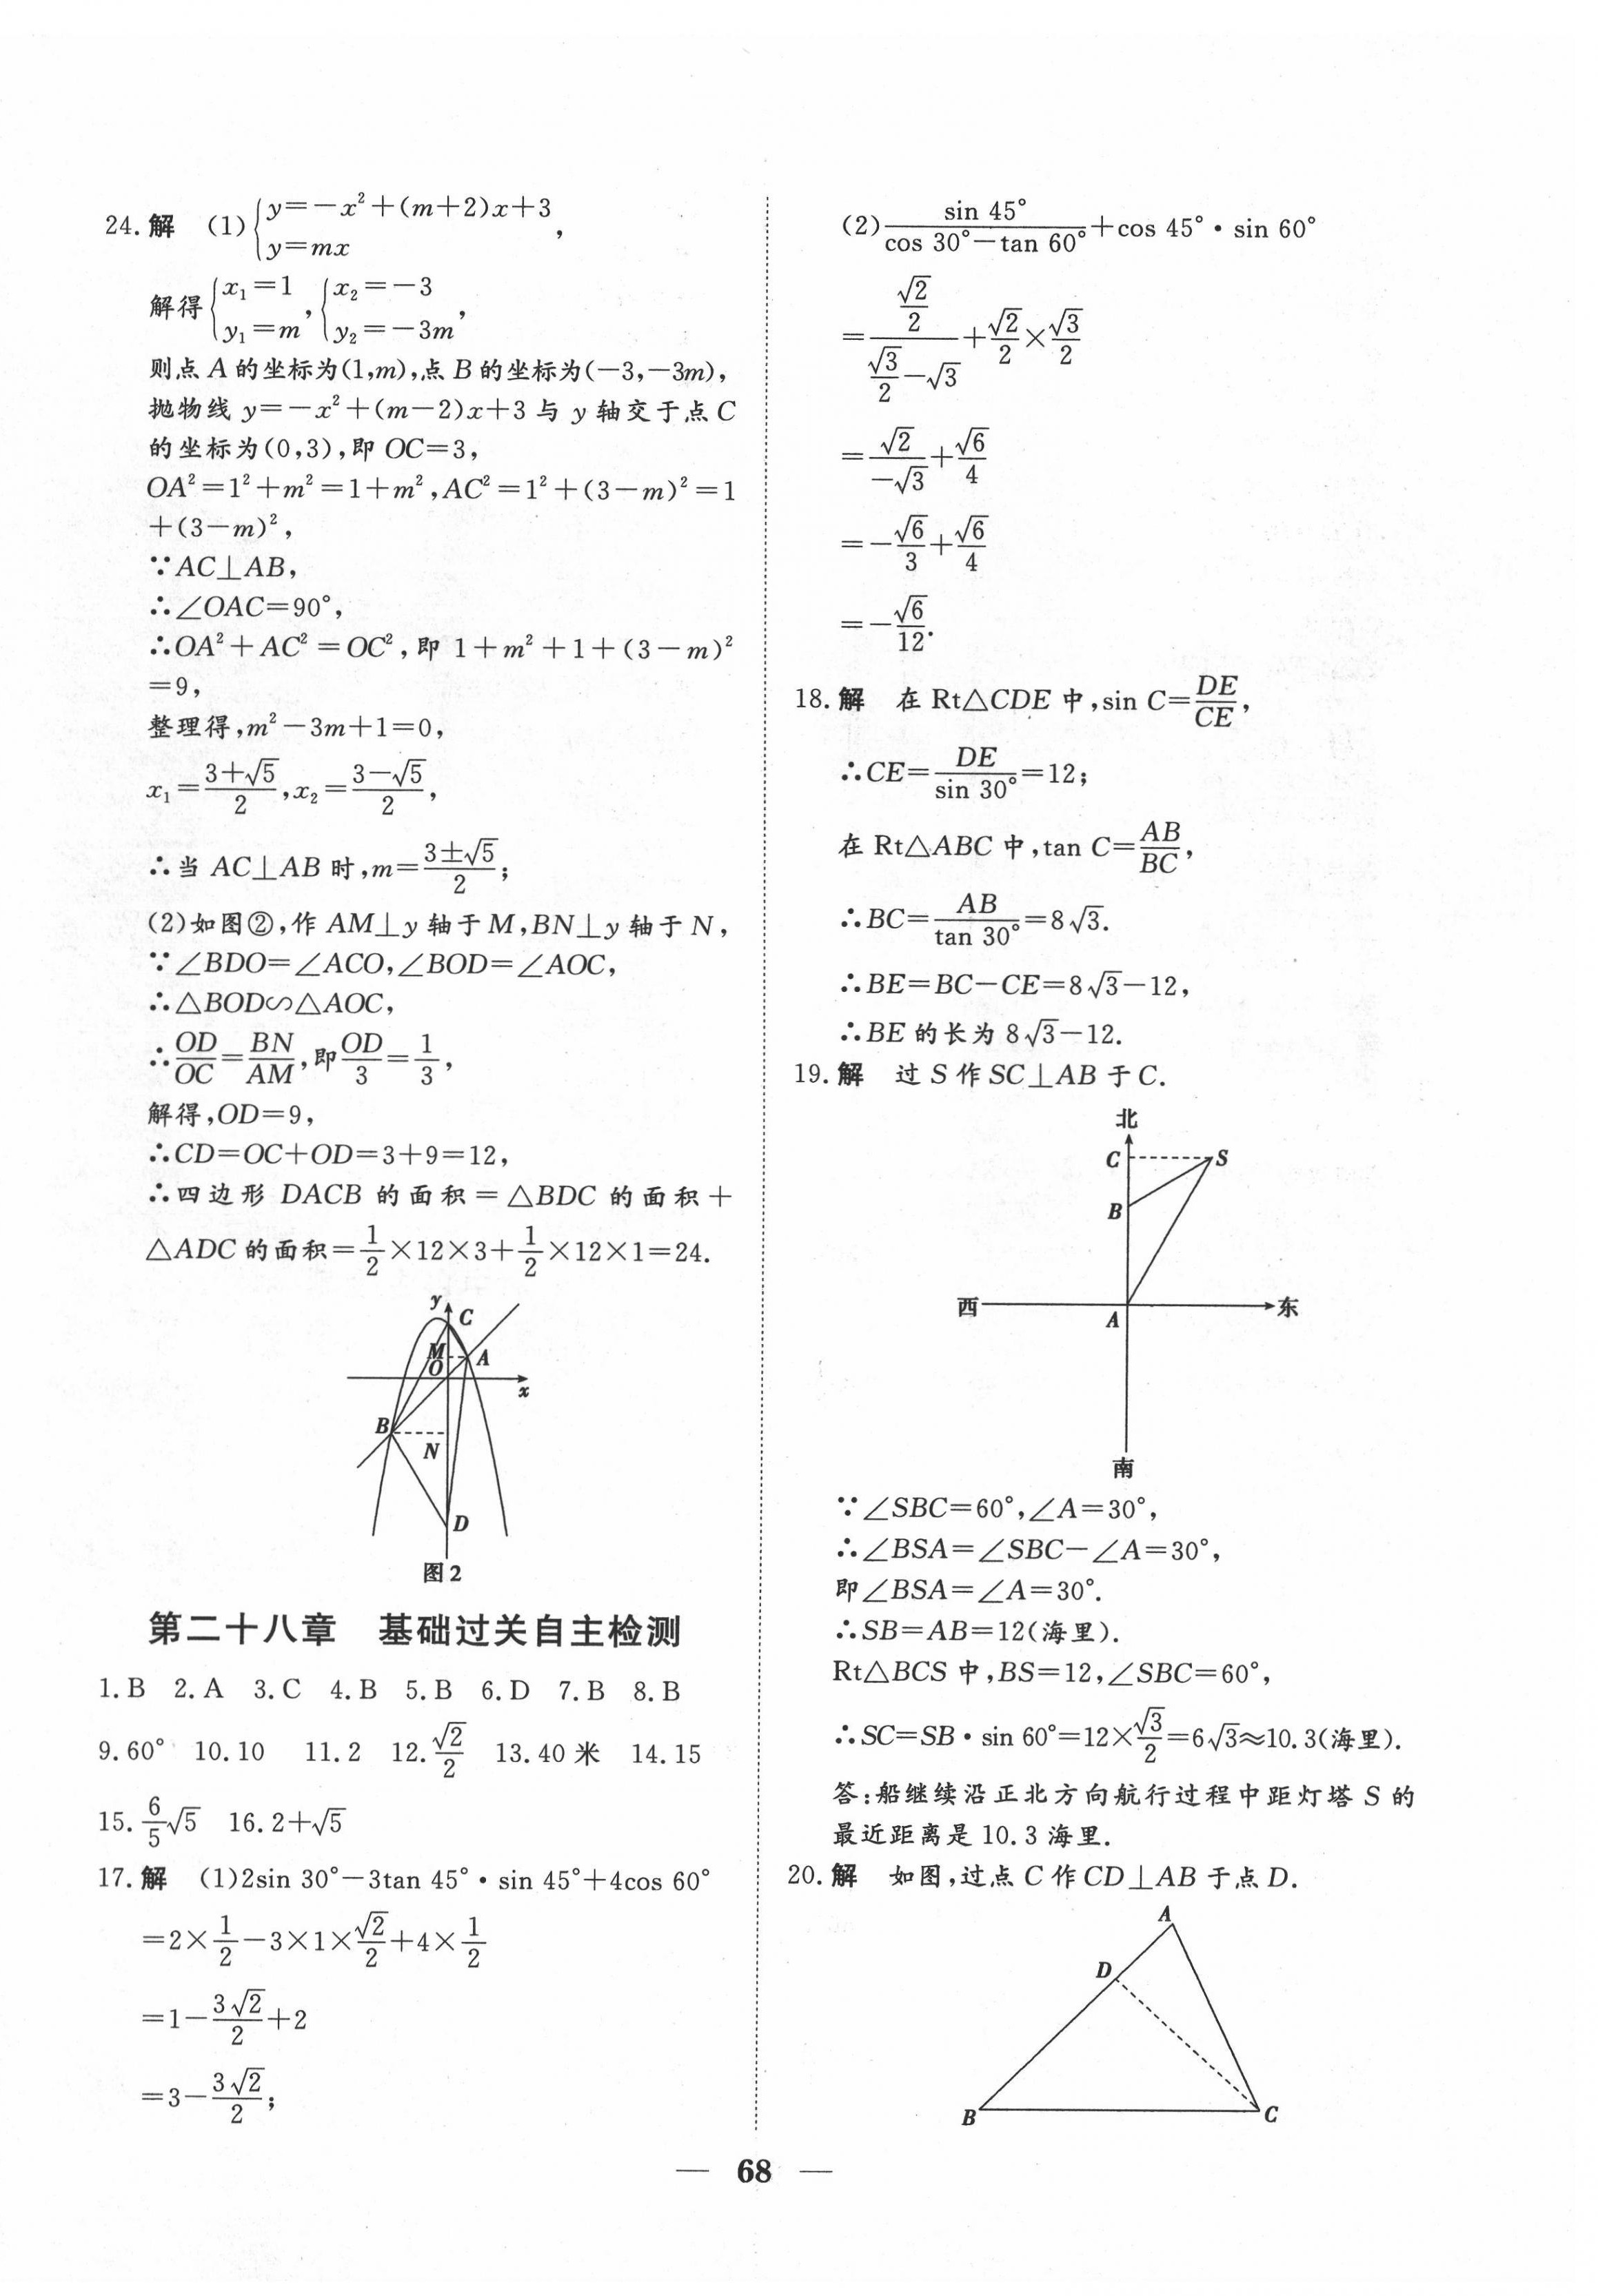 24. 解 (1){y=-x²+(m+2)x+3
y=mx ,
解得{x₁=1 y₁=m ,{x₂=-3 y₂=-3m ,
则点 A 的坐标为(1,m),点 B 的坐标为(-3,-3m),
抛物线 y=-x²+(m-2)x+3 与 y 轴交于点 C
的坐标为(0,3),即 OC=3,
OA²=1²+m²=1+m²,AC²=1²+(3-m)²=1
+(3-m)²,
∵AC⊥AB,
∴∠OAC=90°,
∴OA²+AC²=OC²,即 1+m²+1+(3-m)²
=9,
整理得,m²-3m+1=0,
x₁=(3+√5)/2,x₂=(3-√5)/2,
∴当 AC⊥AB 时,m=(3±√5)/2;
(2)如图②,作 AM⊥y 轴于 M,BN⊥y 轴于 N,
∵∠BDO=∠ACO,∠BOD=∠AOC,
∴△BOD∽△AOC,
∴OD/OC=BN/AM,即OD/3=1/3,
解得,OD=9,
∴CD=OC+OD=3+9=12,
∴四边形 DACB 的面积=△BDC 的面积+
△ADC 的面积=1/2×12×3+1/2×12×1=24.
y
C
M
A
O
x
B
N
D
图2
第二十八章 基础过关自主检测
1.B 2.A 3.C 4.B 5.B 6.D 7.B 8.B
9.60° 10.10 11.2 12.√2/2 13.40 米 14.15
15.6/5√5 16.2+√5
17. 解 (1)2sin 30°-3tan 45°·sin 45°+4cos 60°
=2×1/2-3×1×√2/2+4×1/2
=1-3√2/2+2
=3-3√2/2;
(2)sin 45°/(cos 30°-tan 60°)+cos 45°·sin 60°
=(√2/2)/(√3/2-√3)+√2/2×√3/2
=√2/-√3+√6/4
=-√6/3+√6/4
=-√6/12.
18. 解 在 Rt△CDE 中,sin C=DE/CE,
∴CE=DE/sin 30°=12;
在 Rt△ABC 中,tan C=AB/BC,
∴BC=AB/tan 30°=8√3.
∴BE=BC-CE=8√3-12,
∴BE 的长为 8√3-12.
19. 解 过 S 作 SC⊥AB 于 C.
北
C
S
B
西
东
A
南
∵∠SBC=60°,∠A=30°,
∴∠BSA=∠SBC-∠A=30°,
即∠BSA=∠A=30°.
∴SB=AB=12(海里).
Rt△BCS 中,BS=12,∠SBC=60°,
∴SC=SB·sin 60°=12×√3/2=6√3≈10.3(海里).
答:船继续沿正北方向航行过程中距灯塔 S 的
最近距离是 10.3 海里.
20. 解 如图,过点 C 作 CD⊥AB 于点 D.
A
D
B
C
— 68 —